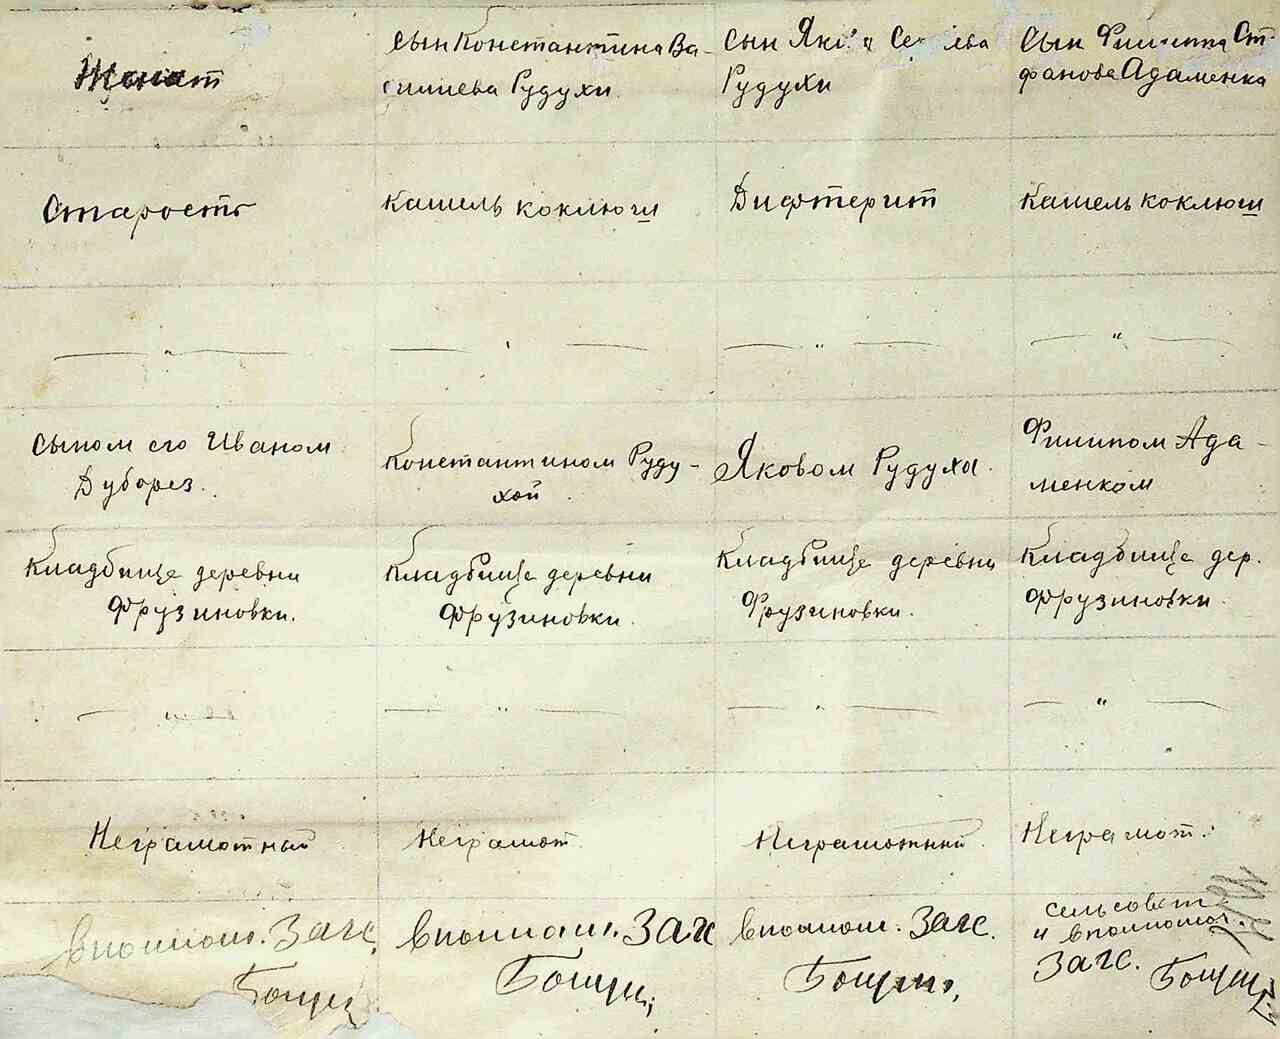 Женат
сын Константина Ва-
силиева Рудухи
сын
Рудухи
сын Филиппа Ст-
фанова Адаменка
Старость
Кашель коклюш
Дифтерит
Кашель коклюш
сыном его Иваном
Дуборез.
Константином Руду-
хой
Яковом Рудуха.
Филипом Ада-
менком
Кладбище деревни
Фрузиновки.
Кладбище деревни
Фрузиновки.
Кладбище деревни
Фрузиновки.
Кладбище дер.
Фрузиновки.
Неграмотный
Неграмот.
Неграмотный.
Неграмот.
Загс.
Загс
Загс.
сельсовет
и
Загс.